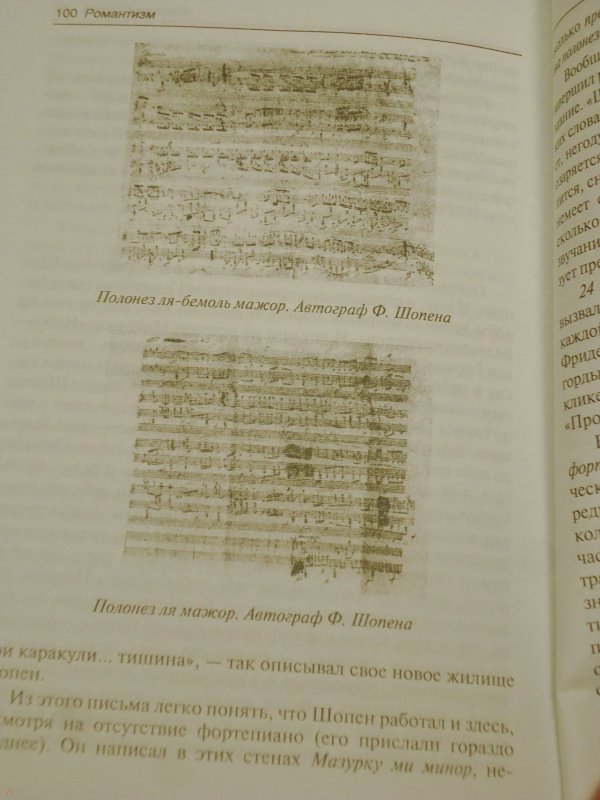 100 Романтизм
Полонез ля-бемоль мажор. Автограф Ф. Шопена
Полонез ля мажор. Автограф Ф. Шопена
каракули... тишина», — так описывал свое новое жилище
опен.
Из этого письма легко понять, что Шопен работал и здесь,
смотря на отсутствие фортепиано (его прислали гораздо
днее). Он написал в этих стенах Мазурку ми минор, не-
колько пре
полонез
Вообщ
авершил р
ание. «Ц
ких слова
ет, негоду
озаряется
ится, сн
немеет с
сколько
звучани
зует пре
24
вызвал
каждо
Фриде
горды
клике
«Про
форт
ческ
реди
кол
час
тра
зн
ти
п
с